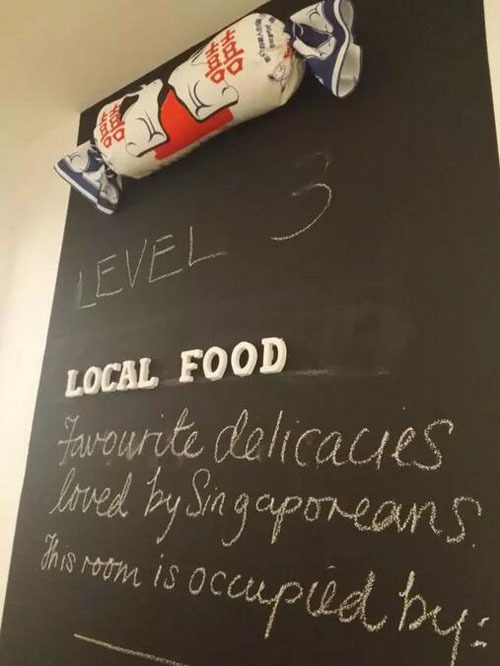 LEVEL 3
LOCAL FOOD
Favourite delicacies
loved by Singaporeans.
This room is occupied by: